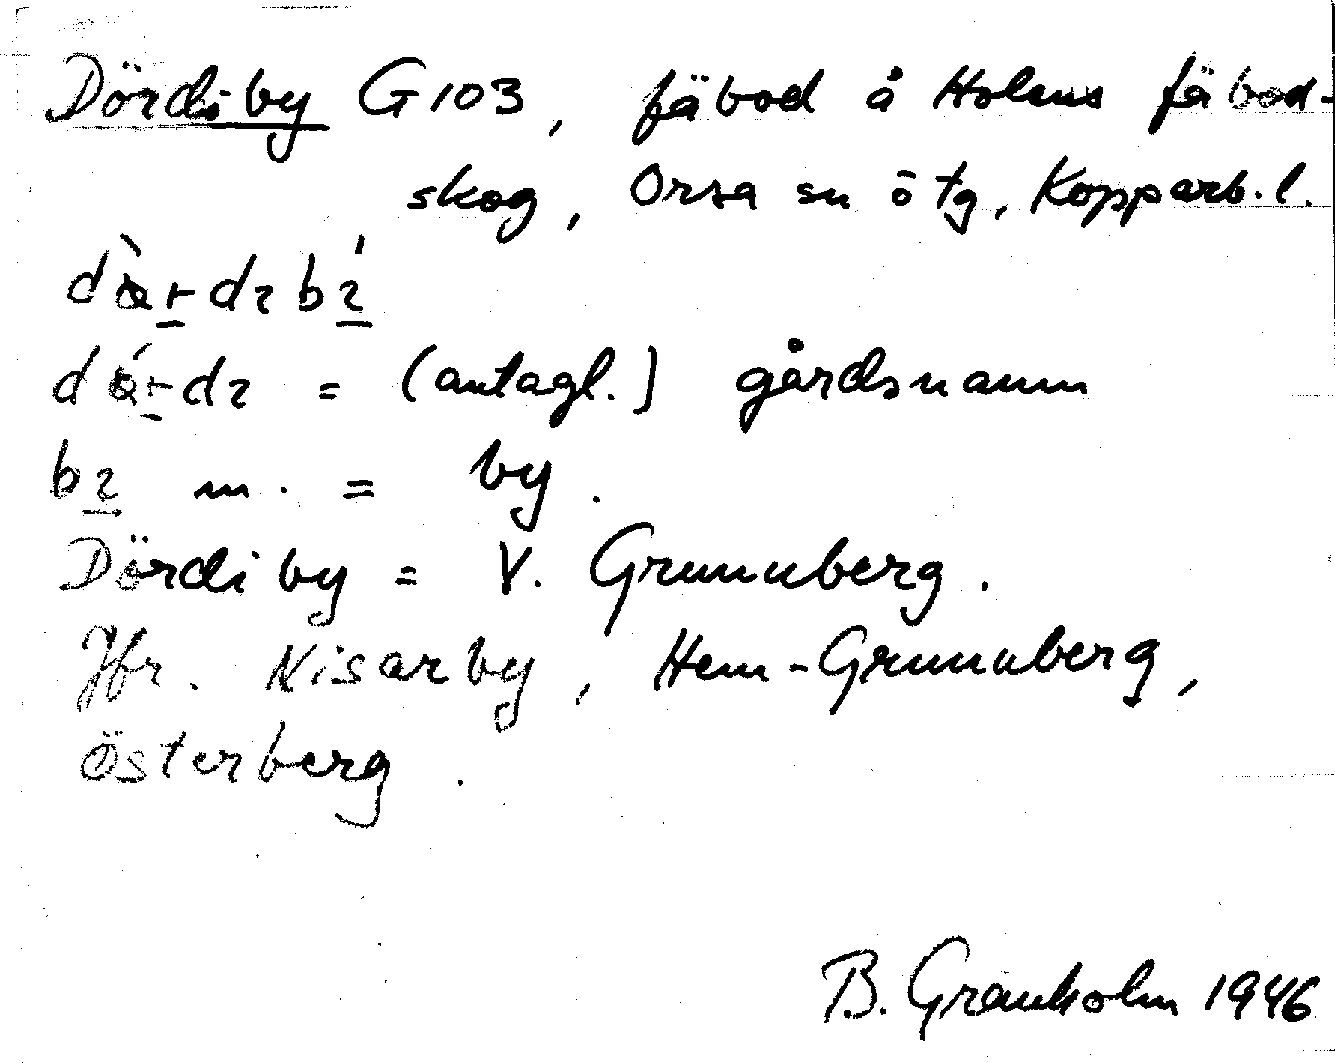 Dördiby G103, fäbod å Holens fäbod-
skog, Orsa sn ö tg, Kopparb. l.
= (antagl.) gårdsnamn
m. = by.
Dördiby = V. Grunuberg.
Jfr. Nisarby, Hem-Grunuberg,
Österberg.
B. Granholm 1946